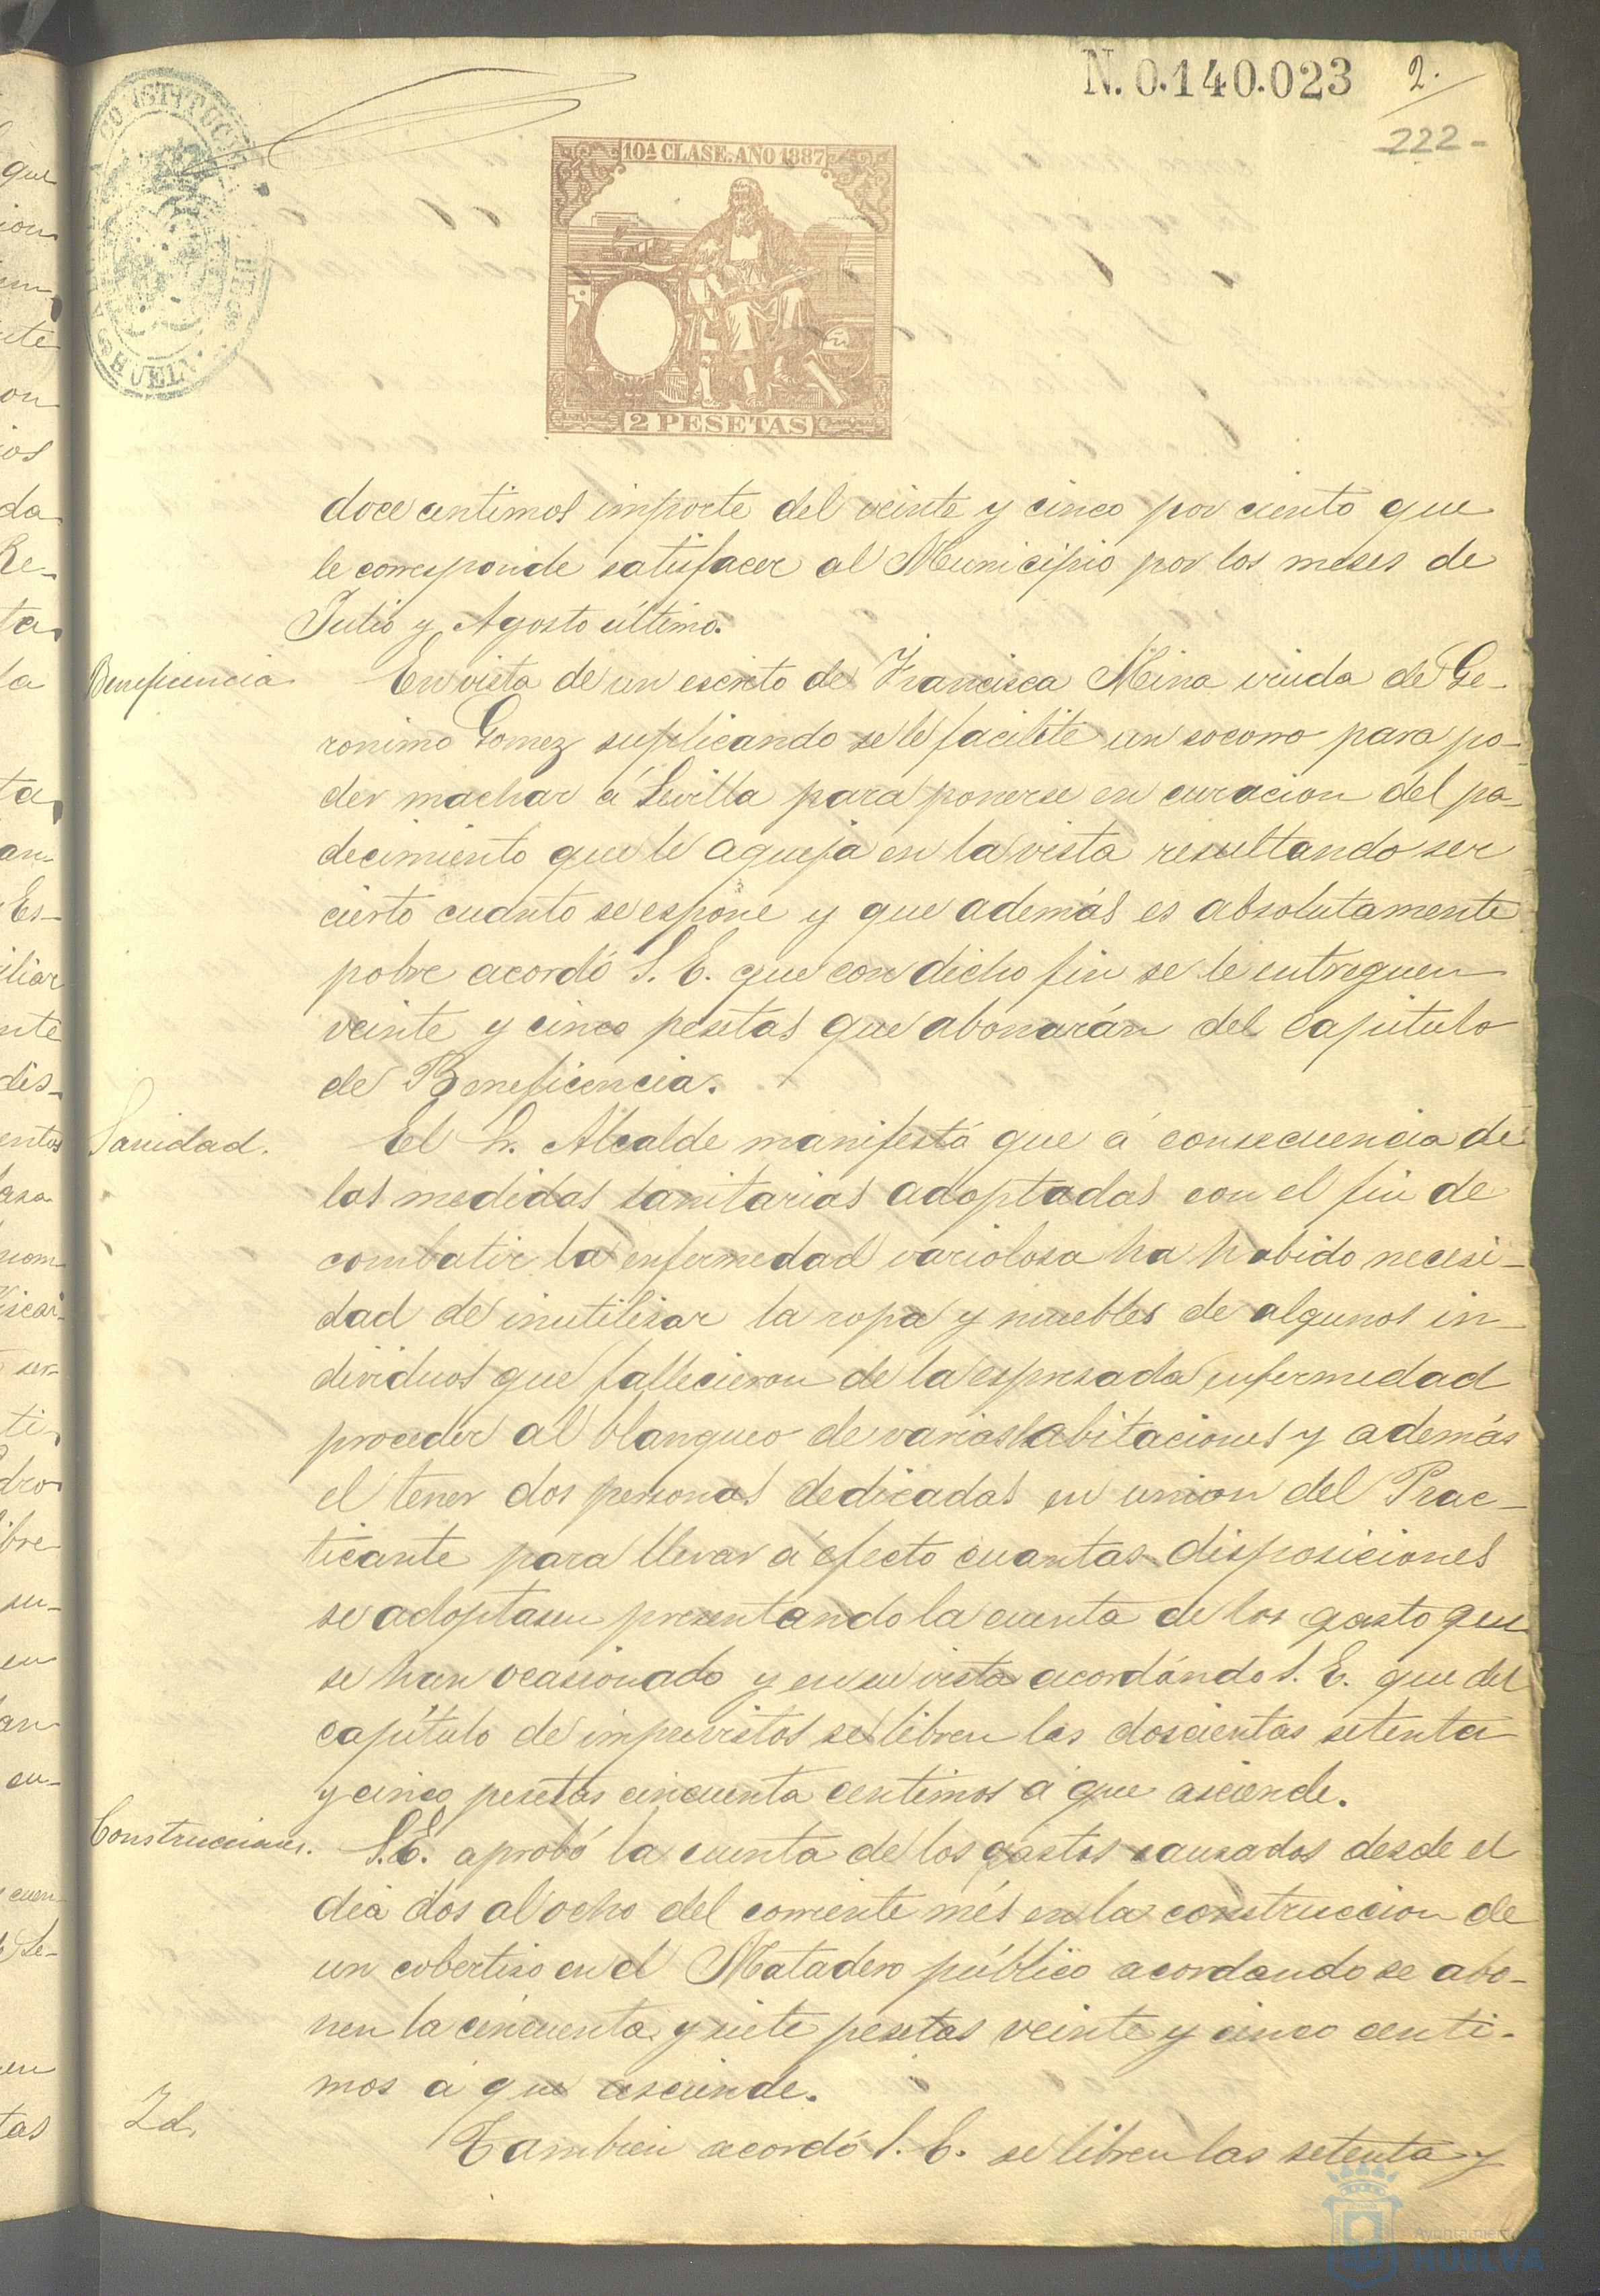 N. 0.140.023
2.
222-
10ª CLASE. AÑO 1887
2 PESETAS
doce centimos importe del veinte y cinco por ciento que
le corresponde satisfacer al Municipio por los meses de
Julio y Agosto último.
Beneficencia
En vista de un escrito de Francisca Mina viuda de Ge-
ronimo Gomez suplicando se le facilite un socorro para po-
der machar á Sevilla para ponerse en curacion del pa-
decimiento que le aqueja en la vista resultando ser
cierto cuanto se espone y que además es absolutamente
pobre acordó S. E. que con dicho fin se le entreguen
veinte y cinco pesetas que abonarán del capitulo
de Beneficencia.
Sanidad.
El Sr. Alcalde manifestó que á consecuencia de
las medidas sanitarias adoptadas con el fin de
combatir la enfermedad variolosa ha habido necesi-
dad de inutilizar la ropa y muebles de algunos in-
dividuos que fallecieron de la espresada enfermedad
proceder al blanqueo de varias habitaciones y además
el tener dos personas dedicadas en union del Prac-
ticante para llevar á efecto cuantas disposiciones
se adoptasen presentando la cuenta de los gasto que
se han ocasionado y en su vista acordándo S. E. que del
capítulo de imprevistos se libren las doscientas setenta
y cinco pesetas cincuenta centimos á que asciende.
Construcciones.
S.E. aprobó la cuenta de los gastos causados desde el
dia dos al ocho del corriente més en la construccion de
un cobertizo en el Matadero público acordando se abo-
nen la cincuenta y siete pesetas veinte y cinco centi-
mos á que asciende.
Id.
Tambien acordó S. E. se libren las setenta y
Ayuntamiento
HUELVA